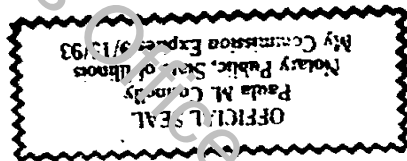 OFFICIAL SEAL
Paula M. Connelly
Notary Public, State of Illinois
My Commission Expires
Office